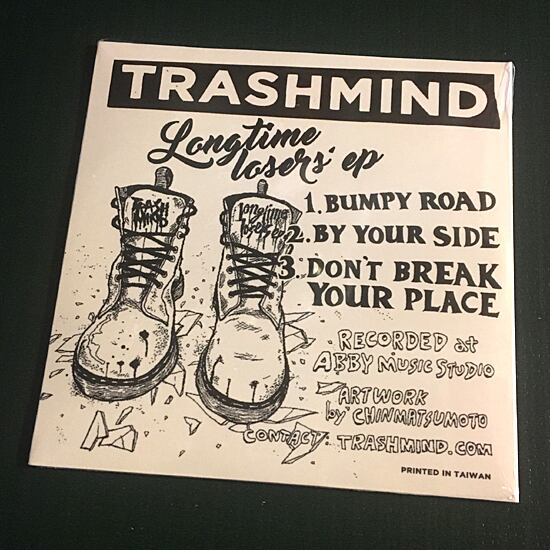 TRASHMIND
Longtime
losers' ep
TRASH
MIND
longtime
losers ep
1. BUMPY ROAD
2. BY YOUR SIDE
3. DON'T BREAK
YOUR PLACE
RECORDED at
ABBY MUSIC STUDIO
ARTWORK
by CHINMATSUMOTO
CONTACT: TRASHMIND.COM
PRINTED IN TAIWAN